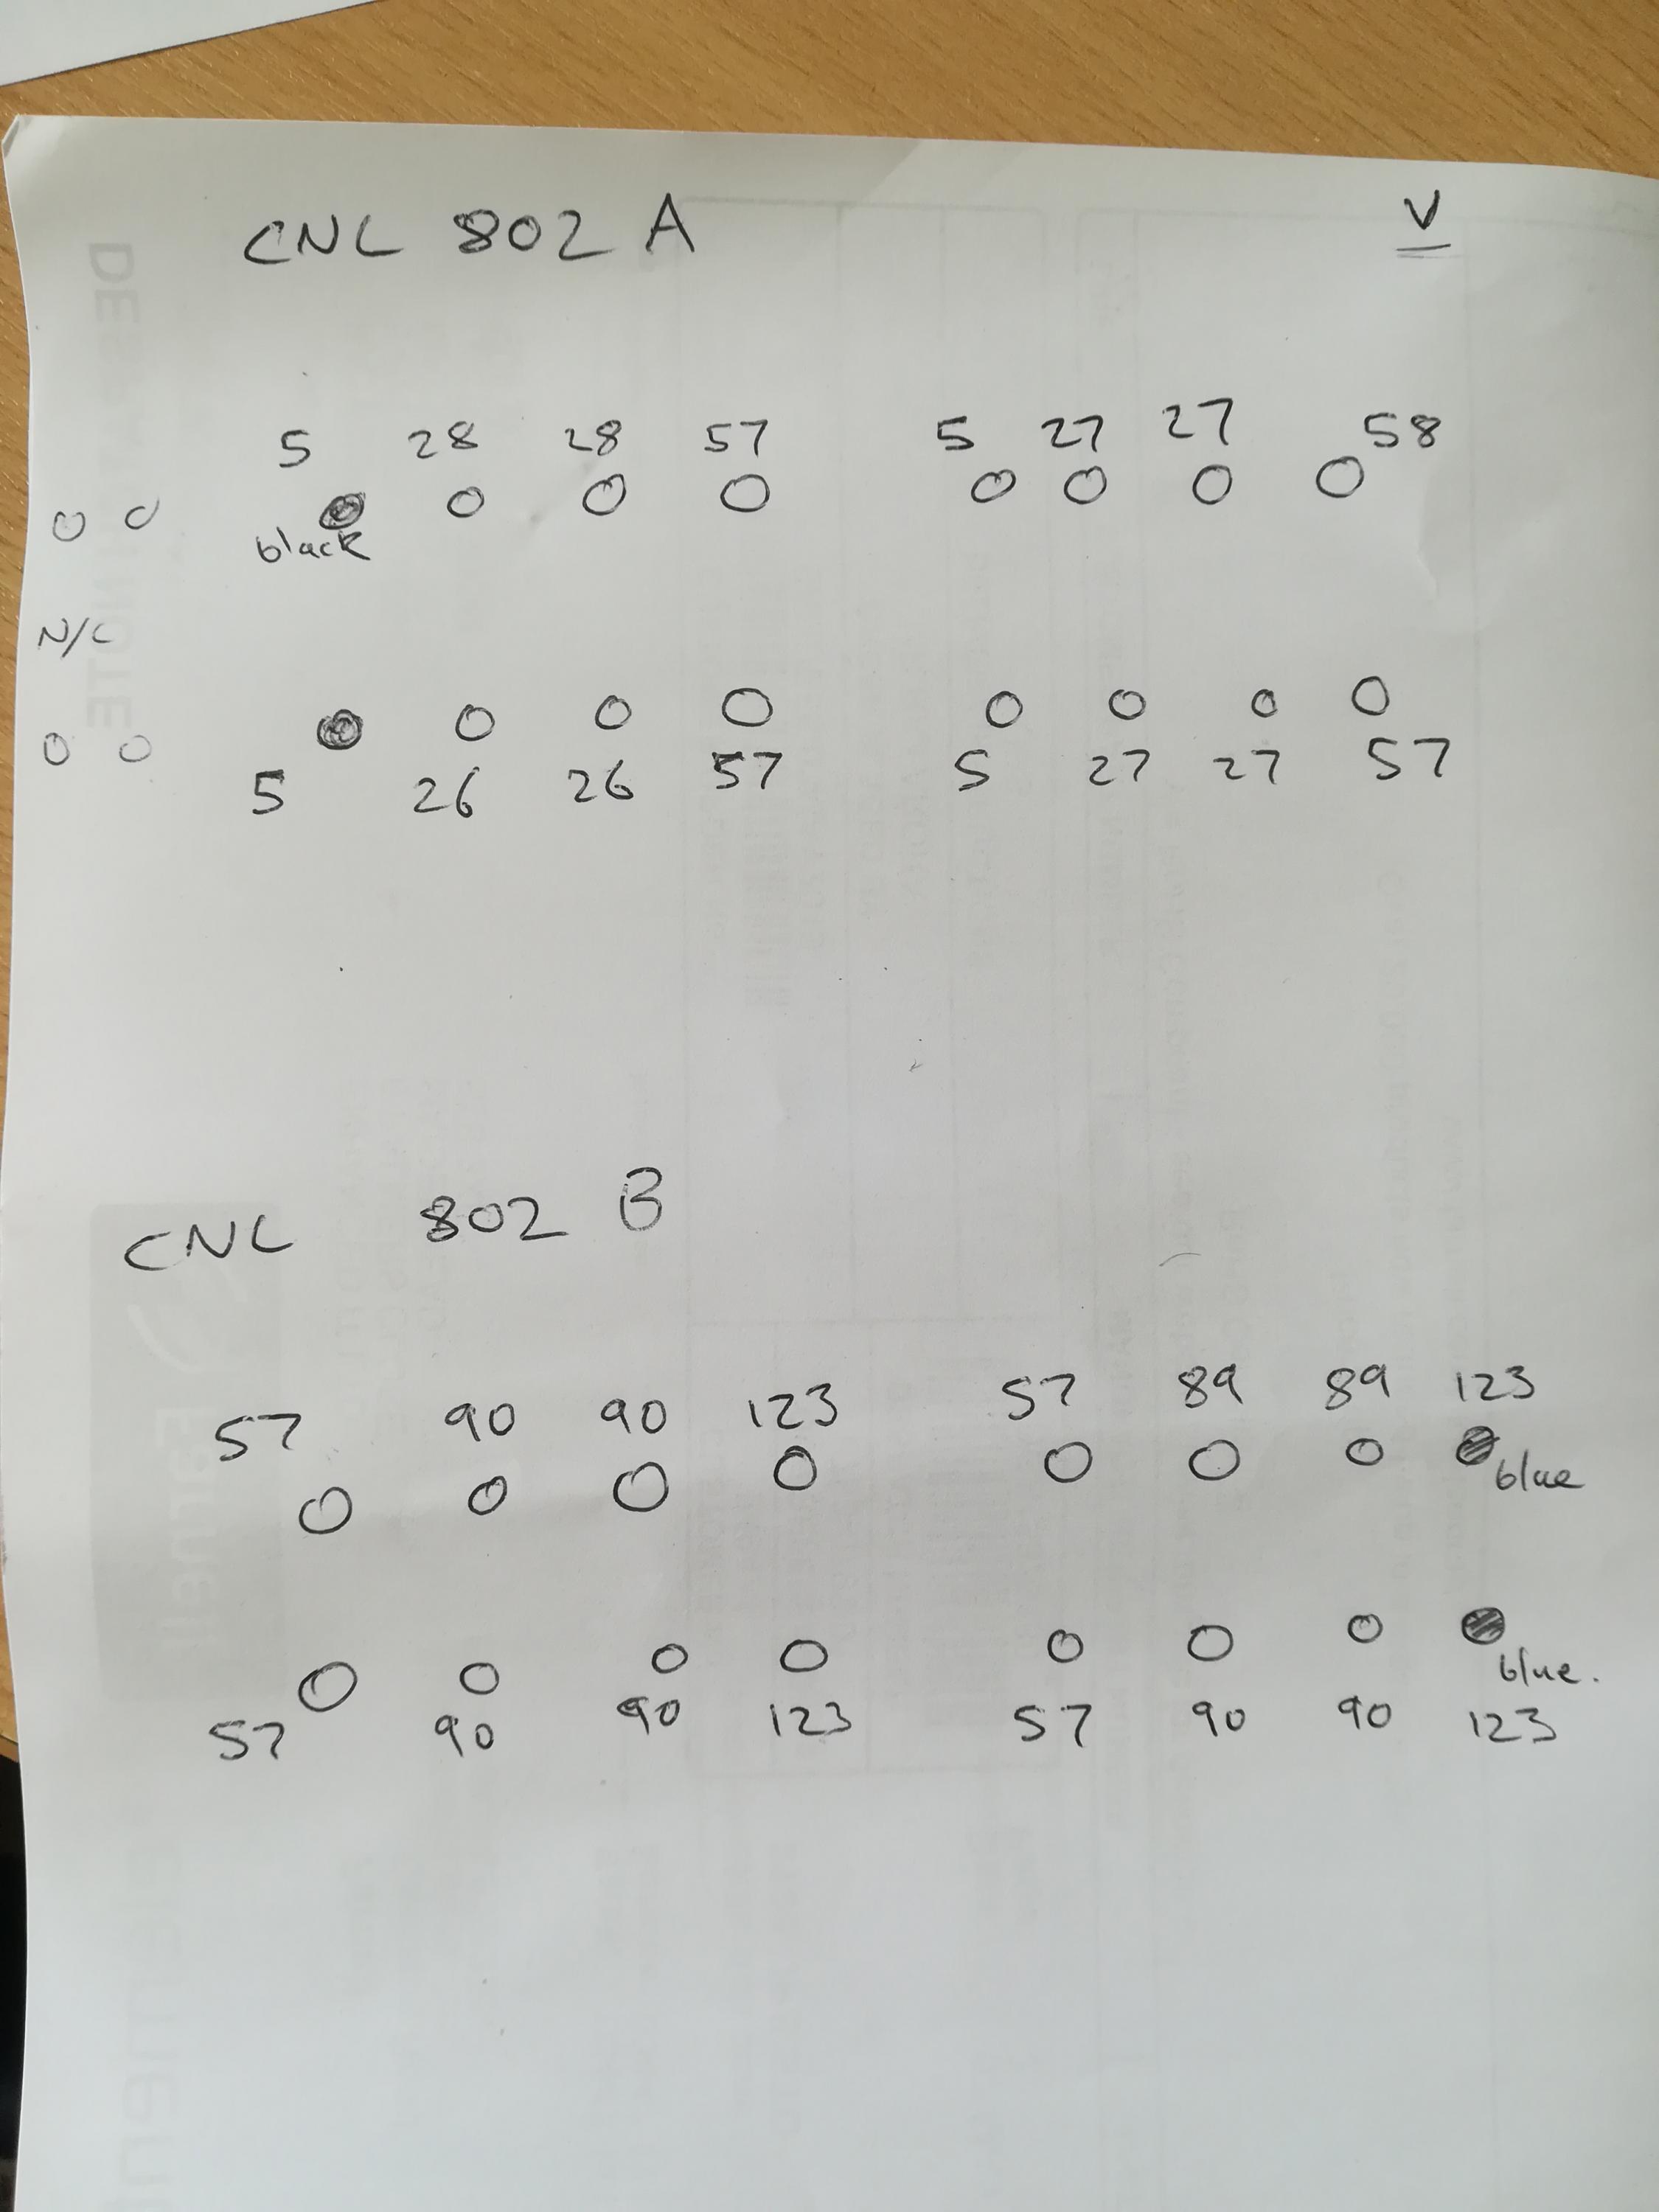 CNL 802 A V
5 28 28 57 5 27 27 58
black
N/C
5 26 26 57 5 27 27 57
CNL 802 B
57 90 90 123 57 89 89 123
blue
blue.
57 90 90 123 57 90 90 123